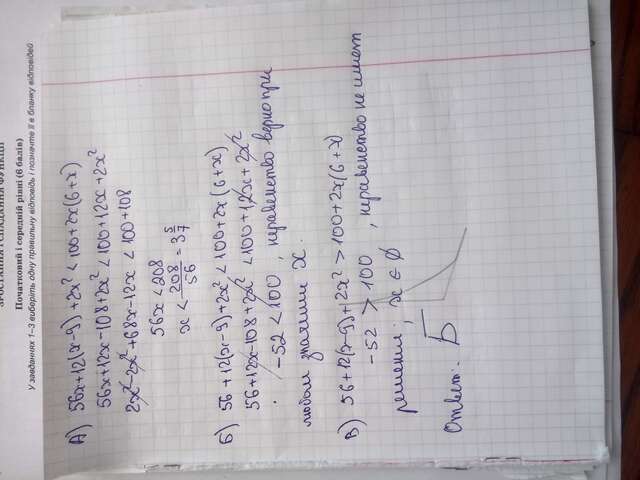 Початковий і середній рівні (6 балів)
У завданнях 1–3 виберіть одну правильну відповідь і позначте її в бланку відповідей
А) 56x+12(x-9)+2x²<100+2x(6+x)
56x+12x-108+2x²<100+12x+2x²
2x²-2x²+68x-12x<100+108
56x<208
x<208/56=3 5/7
Б) 56+12(x-9)+2x²<100+2x(6+x)
56+12x-108+2x²<100+12x+2x²
-52<100, неравенство верно при
любом значении x.
В) 56+12(x-9)+2x²>100+2x(6+x)
-52>100, неравенство не имеет
решения; x∈∅
Ответ: Б